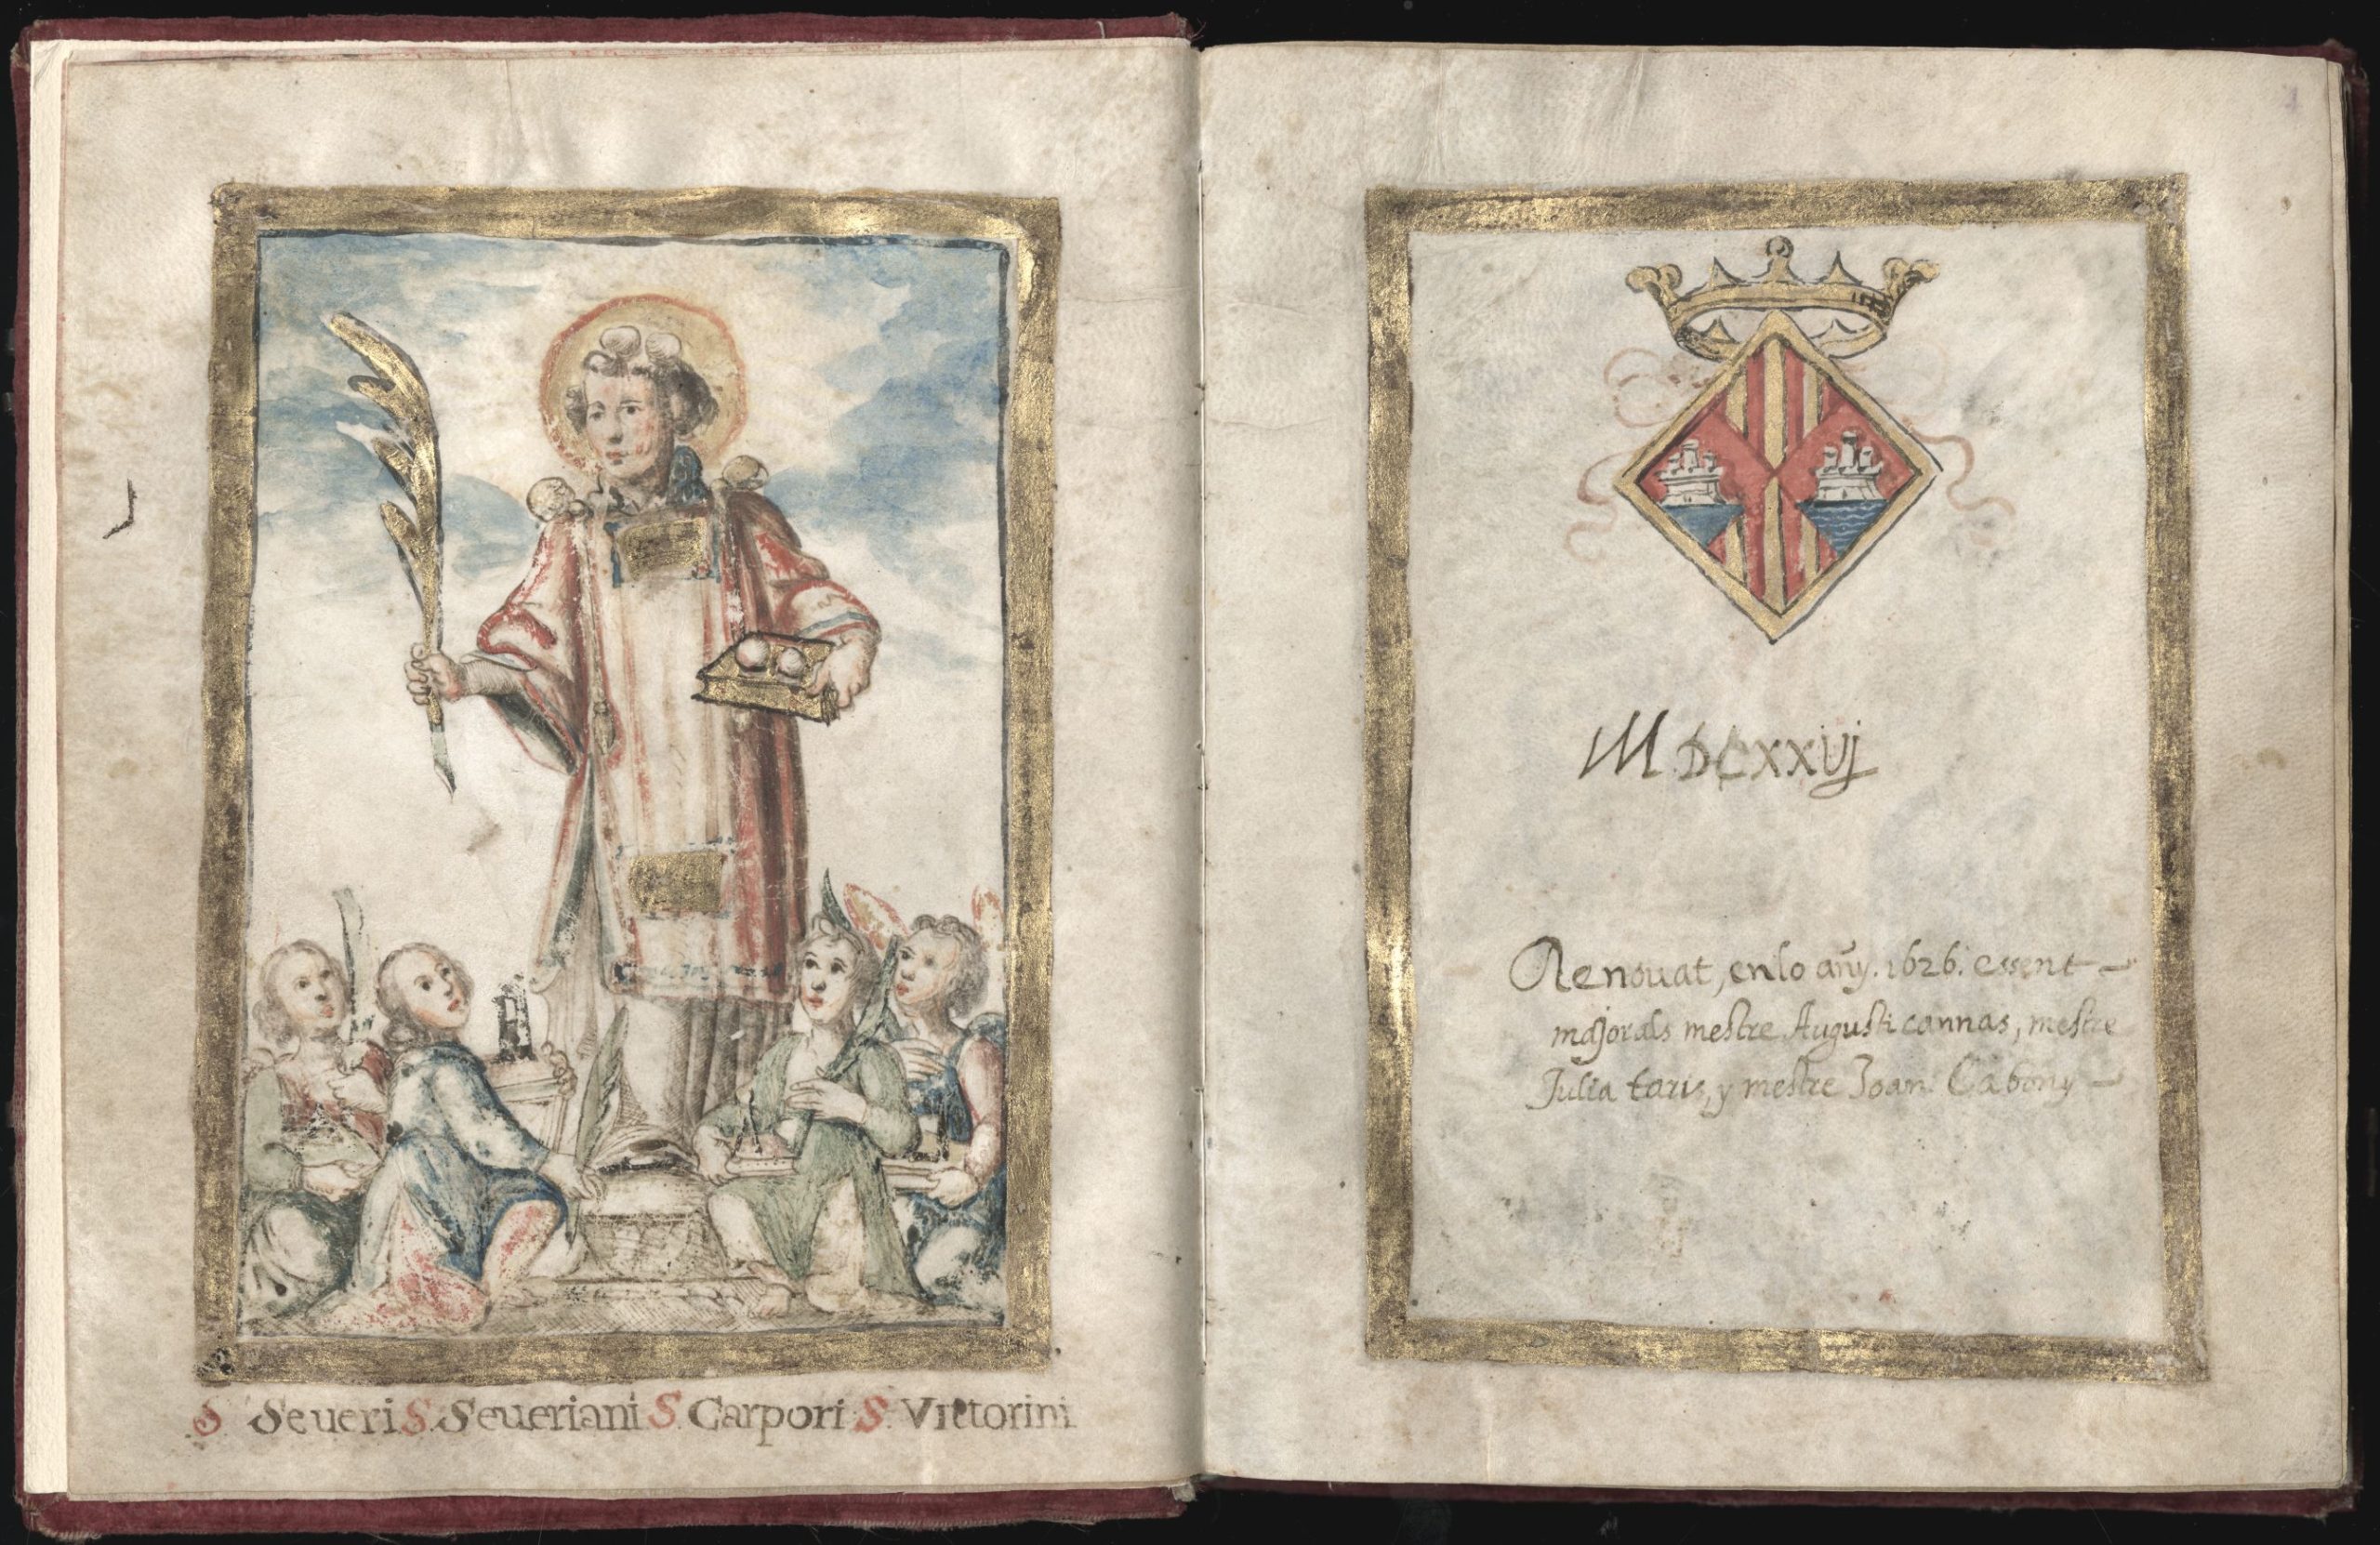 S Seueri S. Seueriani S. Carpori S. Victorini
1
MDCXXVIj
Renouat, en lo añy. 1626. essent
majorals mestre Augusti cannas, mestre
Julia taris, y mestre Joan Cabony